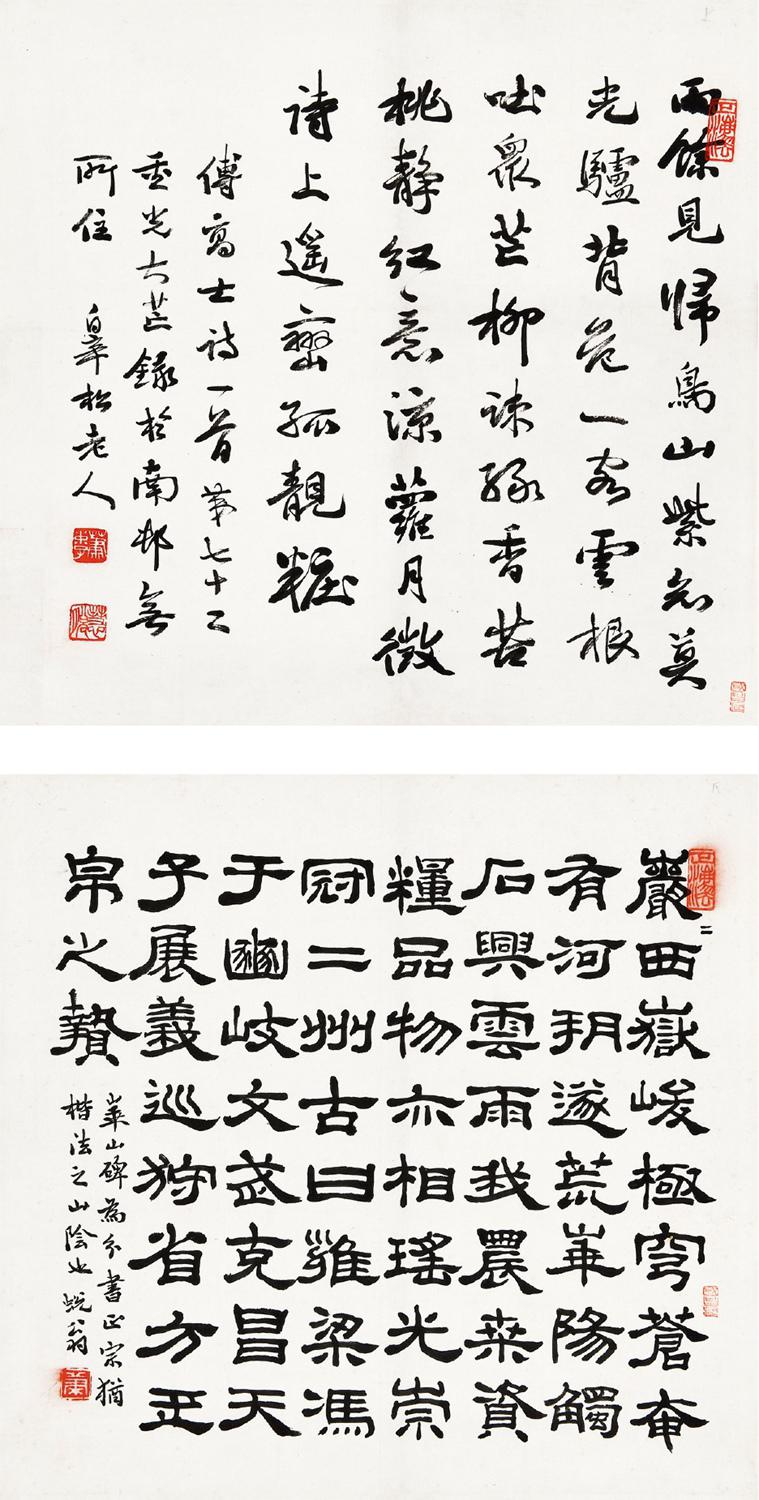 雨餘見歸鳥山紫忽莫
光驢背一客雲根
吐眾芒柳疎緑香苦
桃静紅意涼蘿月微
詩上遥巒孤靚粧
傅高士詩一首第七十二
重光大芒錄於南邨無
所住 皋松老人
巖〻西嶽峻極穹蒼奄
有河朔遂荒崋陽觸
石興雲雨我農桒資
糧品物亦相瑤光崇
冠二州古曰雍梁馮
于豳岐文武克昌天
子展義巡狩省方玉
帛之贄
崋山碑為分書正宗猶
楷法之山陰也 蜕翁